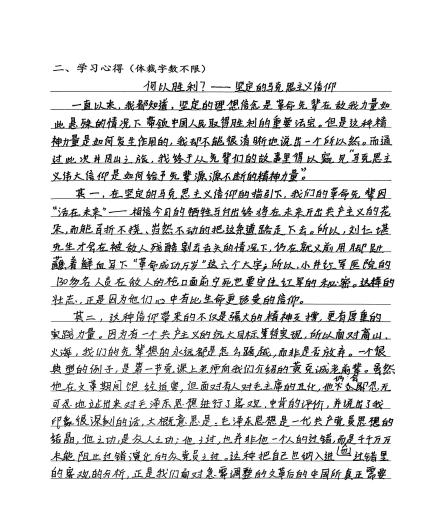 二、学习心得（体裁字数不限）
何以胜利？——坚定的马克思主义信仰
一直以来，我都知道，坚定的理想信念是革命先辈在敌我力量如
此悬殊的情况下带领中国人民取得胜利的重要法宝。但是这种精
神力量是如何发生作用的，我却不能很清晰地说出一个所以然。而通
过此次井冈山之旅，我终于从先辈们的故事里得以窥见“马克思主
义伟大信仰是如何给予先辈源源不断的精神力量”。
其一，在坚定的马克思主义信仰的指引下，我们的革命先辈因
“活在未来”——相信今日的牺牲与付出终将在未来开出共产主义的花
朵，而能百折不挠、岿然不动的把这条道路走下去。所以，刘仁堪
先生才会在被敌人残酷割去舌头的情况下，仍在就义前用脚趾
蘸着鲜血写下“革命成功万岁”这六个大字；所以，小井红军医院的
130多名人员在敌人的枪口面前宁死也要守住红军的秘密。这样的
壮志，正是因为他们心中有比生命更致要的信仰。
其二，这种信仰带来的不仅是强大的精神支撑，更有厚重的
实践力量。因为有一个共产主义的伟大目标等待实现，所以面对高山、
火海，我们的先辈想的永远都是怎么跨越，而非是否放弃。一个很
典型的例子，是第一节党课上老师向我们介绍的黄克诚老前辈。虽然
他在文革期间饱经迫害，但面对有人对毛主席的丑化，他仍会即无
可忍地站出来对毛泽东思想进行了客观、中肯的评价，并说出了我
印象很深刻的话，大概意思是：毛泽东思想是一代共产党员思想的
结晶，他立功，是众人立功；他之过，也并非他一个人的过错，而是千千万万
未能阻止过错演化的众党员之过。这种把自己也纳入进这过错里
的客观的分析，正是我们面对急需调整的文革后的中国所真正需要